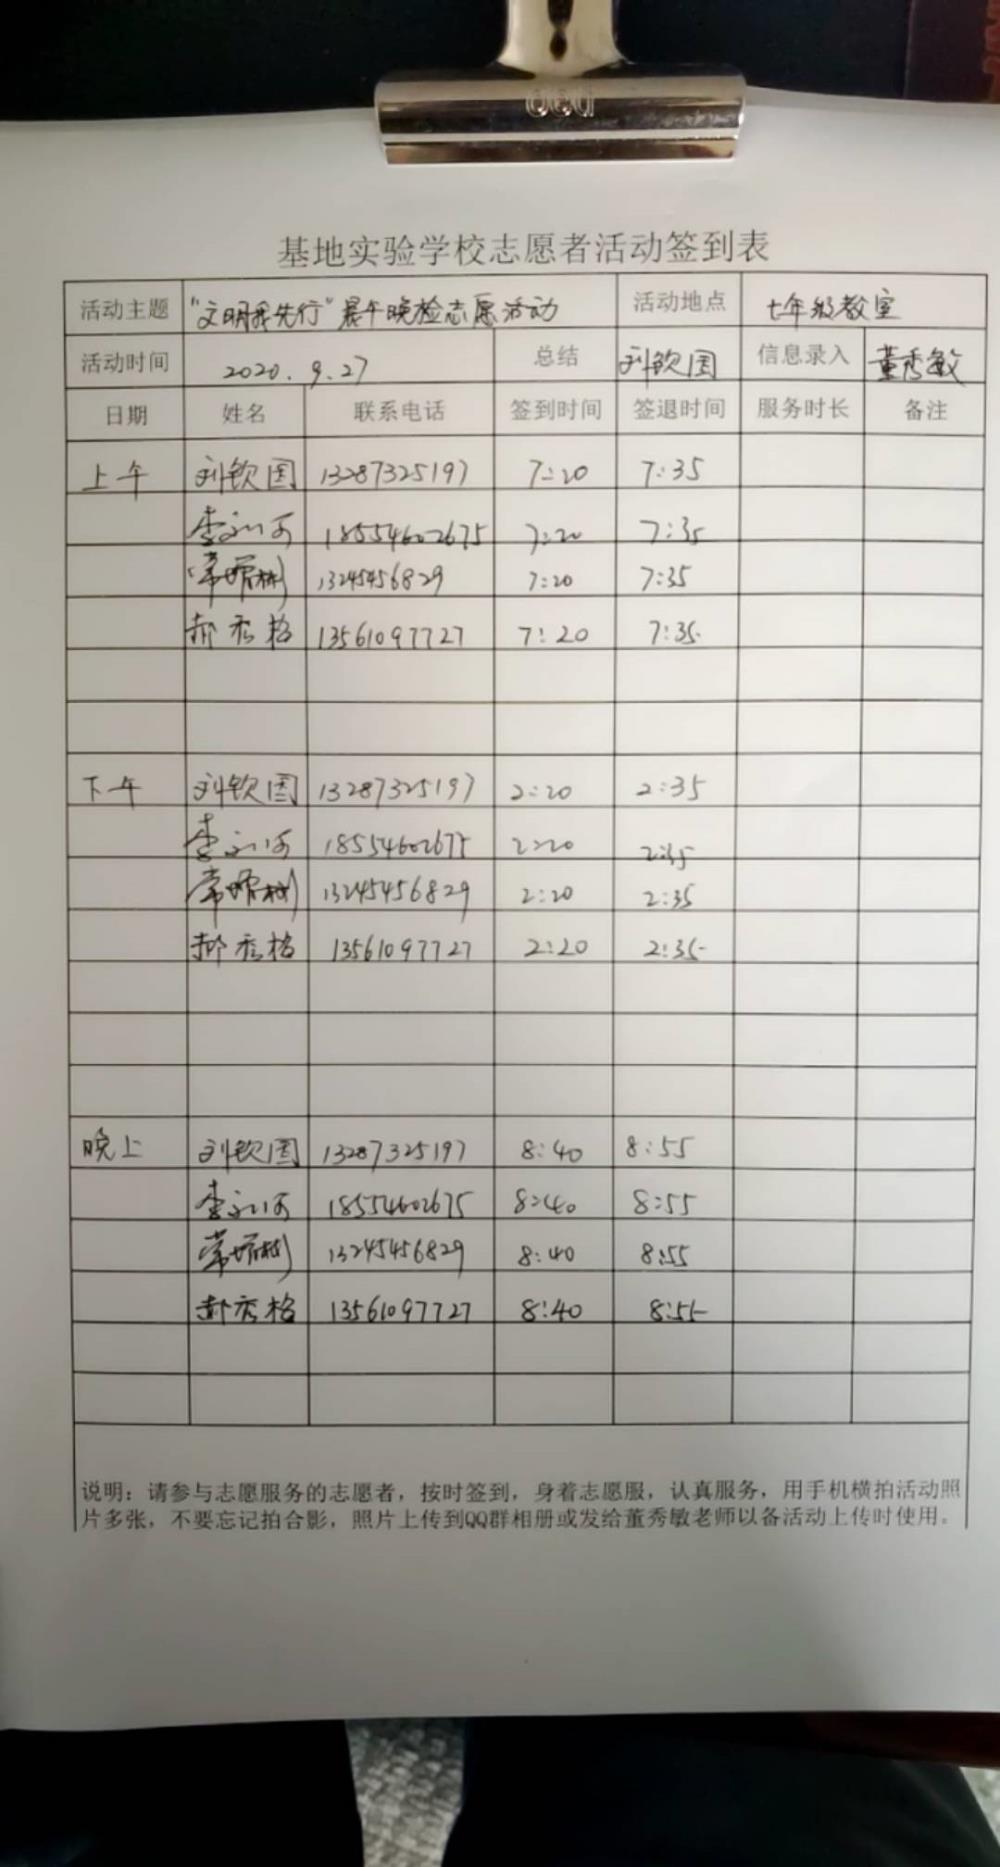 基地实验学校志愿者活动签到表
活动主题 "文明我先行"晨午晚检志愿活动 活动地点 七年级教室
活动时间 2020.9.27 总结 刘钦国 信息录入 董秀敏
日期 姓名 联系电话 签到时间 签退时间 服务时长 备注
上午 刘钦国 13287325197 7:20 7:35
李 18554602675 7:20 7:35
常 13245456829 7:20 7:35
郝秀格 13561097727 7:20 7:35
下午 刘钦国 13287325197 2:20 2:35
李 18554602675 2:20 2:35
常 13245456829 2:20 2:35
郝秀格 13561097727 2:20 2:35
晚上 刘钦国 13287325197 8:40 8:55
李 18554602675 8:40 8:55
常 13245456829 8:40 8:55
郝秀格 13561097727 8:40 8:55
说明：请参与志愿服务的志愿者，按时签到，身着志愿服，认真服务，用手机横拍活动照
片多张，不要忘记拍合影，照片上传到QQ群相册或发给董秀敏老师以备活动上传时使用。